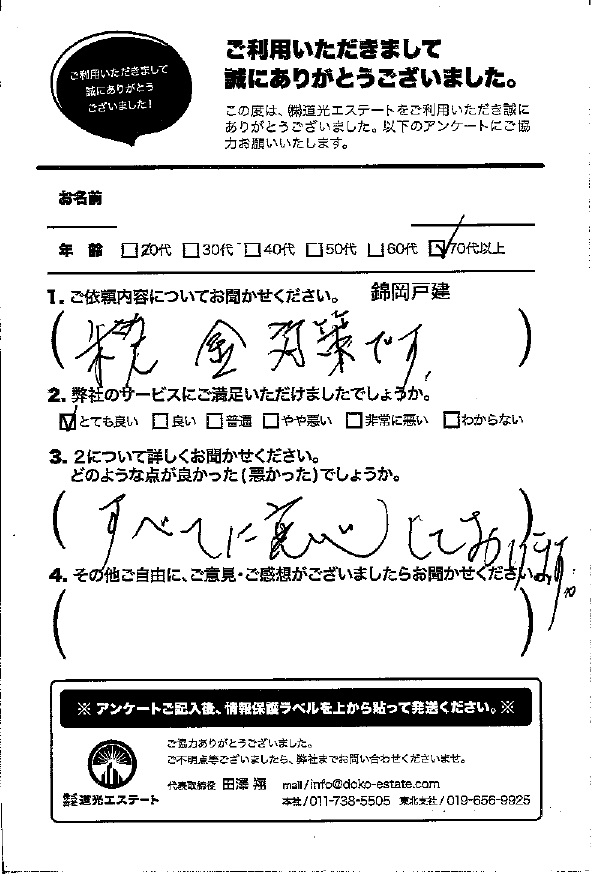 ご利用いただきまして
誠にありがとう
ございました!
ご利用いただきまして
誠にありがとうございました。
この度は、㈱道光エステートをご利用いただき誠に
ありがとうございました。以下のアンケートにご協
力お願いいたします。
お名前
年 齢 □20代 □30代 □40代 □50代 □60代 ☑70代以上
1. ご依頼内容についてお聞かせください。 錦岡戸建
(税金対策です)
2. 弊社のサービスにご満足いただけましたでしょうか。
☑とても良い □良い □普通 □やや悪い □非常に悪い □わからない
3. 2について詳しくお聞かせください。
どのような点が良かった(悪かった)でしょうか。
(すべてに しております。)
4. その他ご自由に、ご意見・ご感想がございましたらお聞かせください。
( )
※ アンケートご記入後、情報保護ラベルを上から貼って発送ください。※
ご協力ありがとうございました。
ご不明点等ございましたら、弊社までお問い合わせくださいませ。
代表取締役 田澤 翔 mail/info@doko-estate.com
株式会社道光エステート 本社/011-738-5505 東北支社/019-656-9925